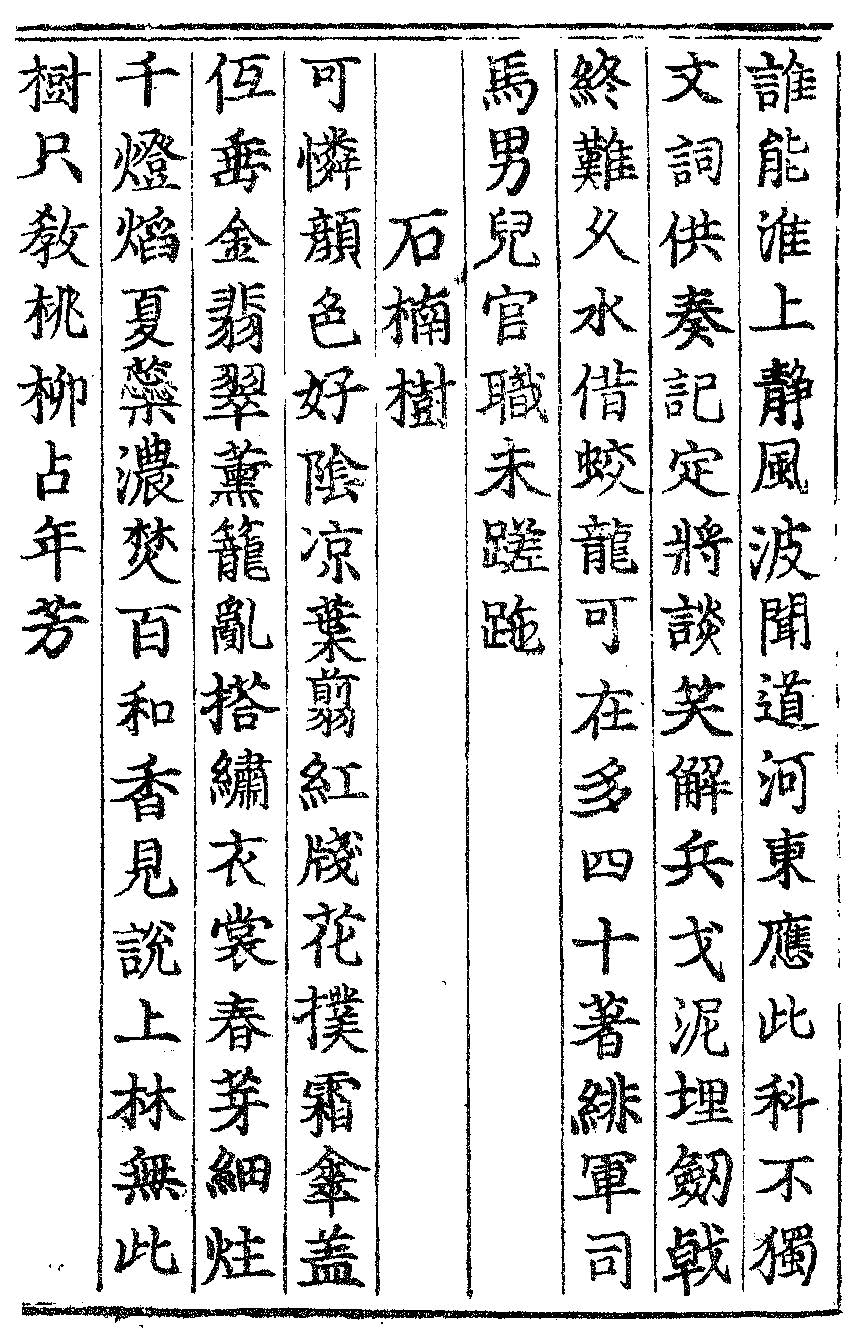 誰能淮上靜風波聞道河東應此科不獨
文詞供奏記定將談笑解兵戈泥埋劔戟
終難久水借蛟龍可在多四十著緋軍司
馬男兒官職未蹉跎
石楠樹
可憐顔色好陰凉葉翦紅牋花撲霜傘蓋
伍垂金翡翠薰籠亂搭繡衣裳春芽細炷
千燈焰夏蘂濃焚百和香見說上林無此
樹只教桃柳占年芳